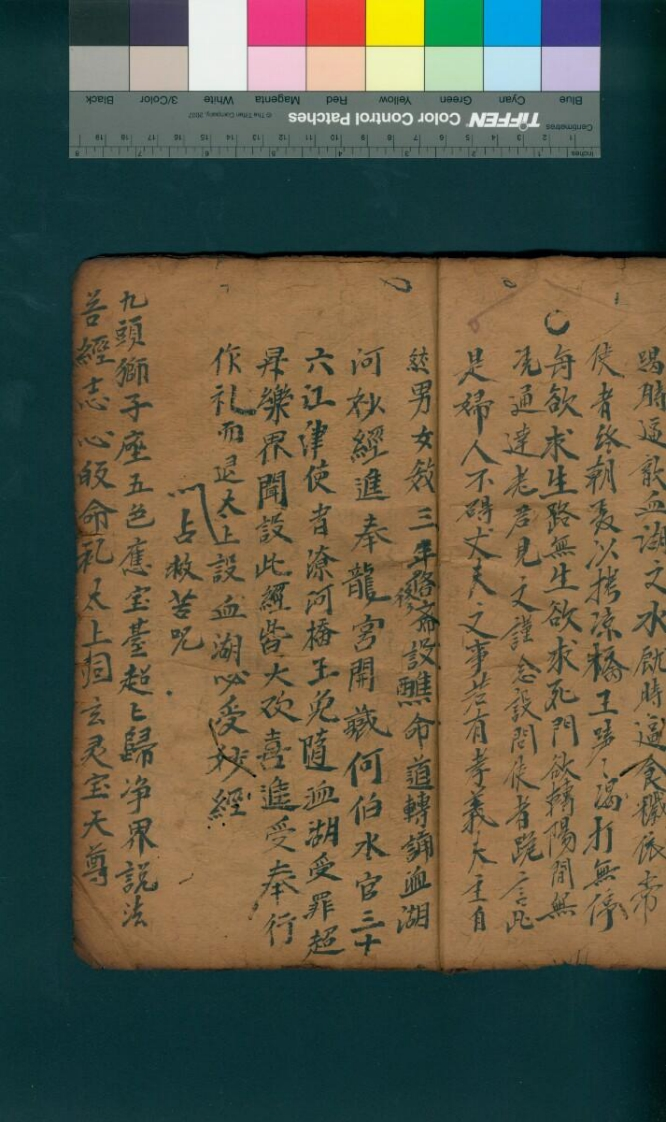 渴時逼飲血湖之水飢時逼食糲依常
使者終朝
每欲求生路無生欲求死門欲轉陽間無
通達老君見文謹念設問使者跪言此
是婦人不碍丈夫之事若有孝義夫主自
終男女教三年修齋設醮命道轉誦血湖
河妙經進奉龍宮開藏何伯水官三十
六江津使者潦河橋王免隨血湖受罪超
昇樂界聞設此經皆大欢喜進受奉行
作礼而退太上設血湖受妙經
占救苦咒
九頭獅子座五色應宝臺超匕歸净界説法
苦經志心皈命礼太上洞玄灵宝天尊
TIFFEN Color Control Patches
© The Tiffen Company, 2007
Centimetres
Inches
Blue Cyan Green Yellow Red Magenta White 3/Color Black